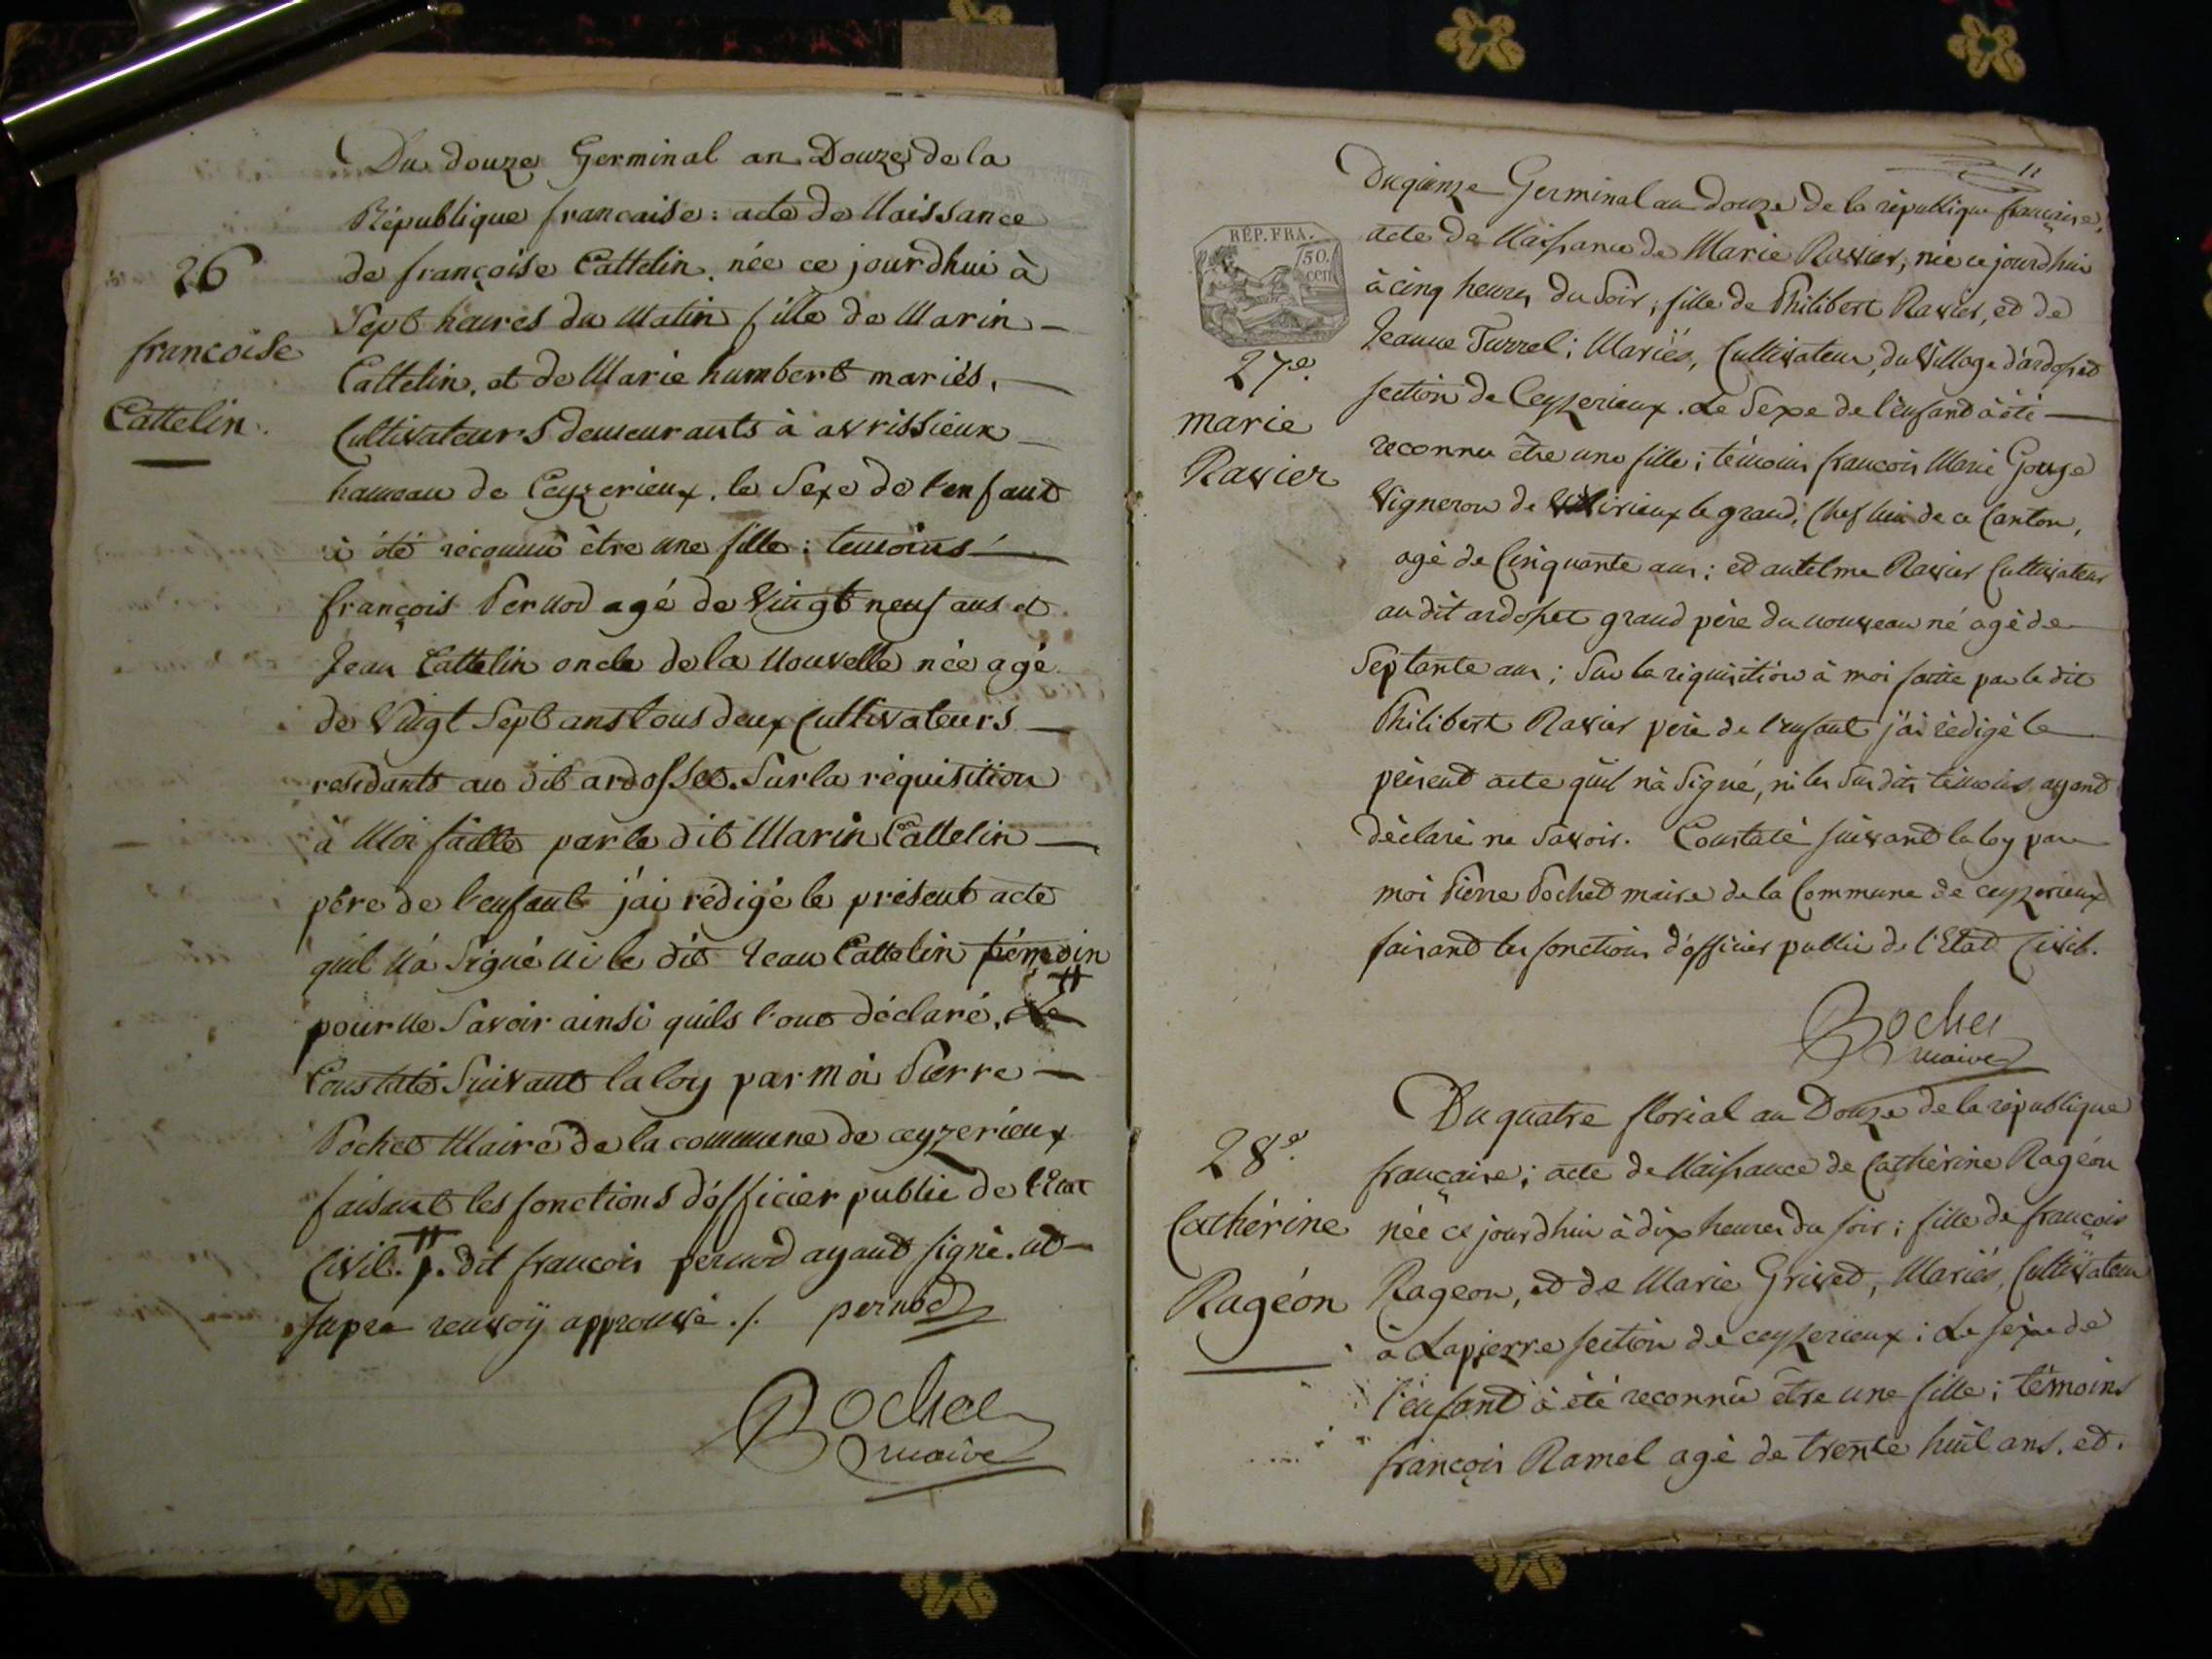 Du douze Germinal an Douze de la
République francaise : acte de Naissance
de françoise Cattelin, née ce jourdhui à
Sept heures du Matin fille de Marin
Cattelin, et de Marie humbert mariés,
Cultivateurs demeurants à avrissieux
hameau de Ceyzerieux. le Sexe de l'enfant
à été reconnu être une fille ; temoins
françois Pernod agé de Vingt neuf ans et
Jean Cattelin oncle de la Nouvelle née agé
de Vingt Sept ans tous deux Cultivateurs
residants au dit ardosset. Sur la réquisition
à Moi faitte par le dit Marin Cattelin
père de l'enfant j'ai rédigé le présent acte
quil N'a Signé ni le dit Jean Cattelin témoin
pour Ne Savoir ainsi quils l'ont déclaré. Le #
Constaté Suivant la loy par Moi Pierre
Pochet Maire de la commune de ceyzerieux
faisant les fonctions d'officier public de l'Etat
Civil. # . dit francois pernod ayant signé. ut
supra renvoÿ approuvé ./. pernod
Pochet
maire
26
francoise
Cattelin.
11
Du quinze Germinal an douze de la république française,
acte de Naissance de Marie Ravier, née ce jourdhui
à cinq heures du Soir, fille de Philibert Ravier, et de
Jeanne Turrel ; Mariés, Cultivateur, du Village d'ardosset
section de Ceyzerieux. Le Sexe de l'enfant à été
reconnu être une fille ; témoins francois Marie Gouge
Vigneron de Virieux le grand, Chef lieu de ce Canton,
agé de Cinquante ans ; et antelme Ravier Cultivateur
au dit ardosset grand père du nouveau né agé de
Septante ans ; Sur la réquisition à moi faitte par le dit
Philibert Ravier père de l'enfant j'ai rédigé le
présent acte quil n'à Signé, ni les Susdits témoins ayant
déclaré ne Savoir. Constaté suivant la loy par
moi Pierre Pochet maire de la Commune de ceyzerieux
faisant les fonctions d'officier public de l'Etat Civil.
Pochet
maire
RÉP. FRA.
50.
cen
27e.
marie
Ravier
Du quatre floréal an Douze de la république
française ; acte de Naissance de Cathérine Ragéon
née ce jourdhui à dix heures du soir ; fille de françois
Rageon, et de Marie Grivet, Mariés, Cultivateur
à Lapierre section de ceyzerieux : Le sexe de
l'enfant à été reconnu être une fille ; témoins
françois Ramel agé de trente huit ans. et.
28e.
Cathérine
Ragéon